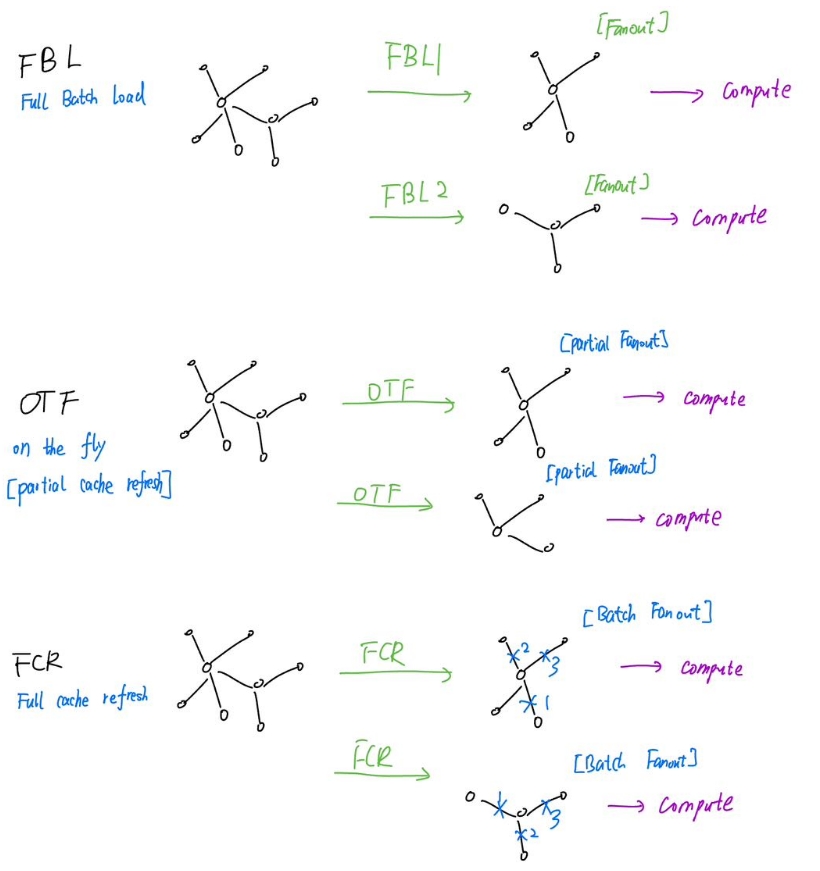 FBL
Full Batch Load
FBL1
[Fanout]
→ Compute
FBL2
[Fanout]
→ Compute
OTF
on the fly
[partial cache refresh]
OTF
[partial Fanout]
→ compute
OTF
[partial Fanout]
→ compute
FCR
Full cache refresh
FCR
[Batch Fanout]
2
3
1
→ compute
FCR
[Batch Fanout]
1
3
2
→ compute